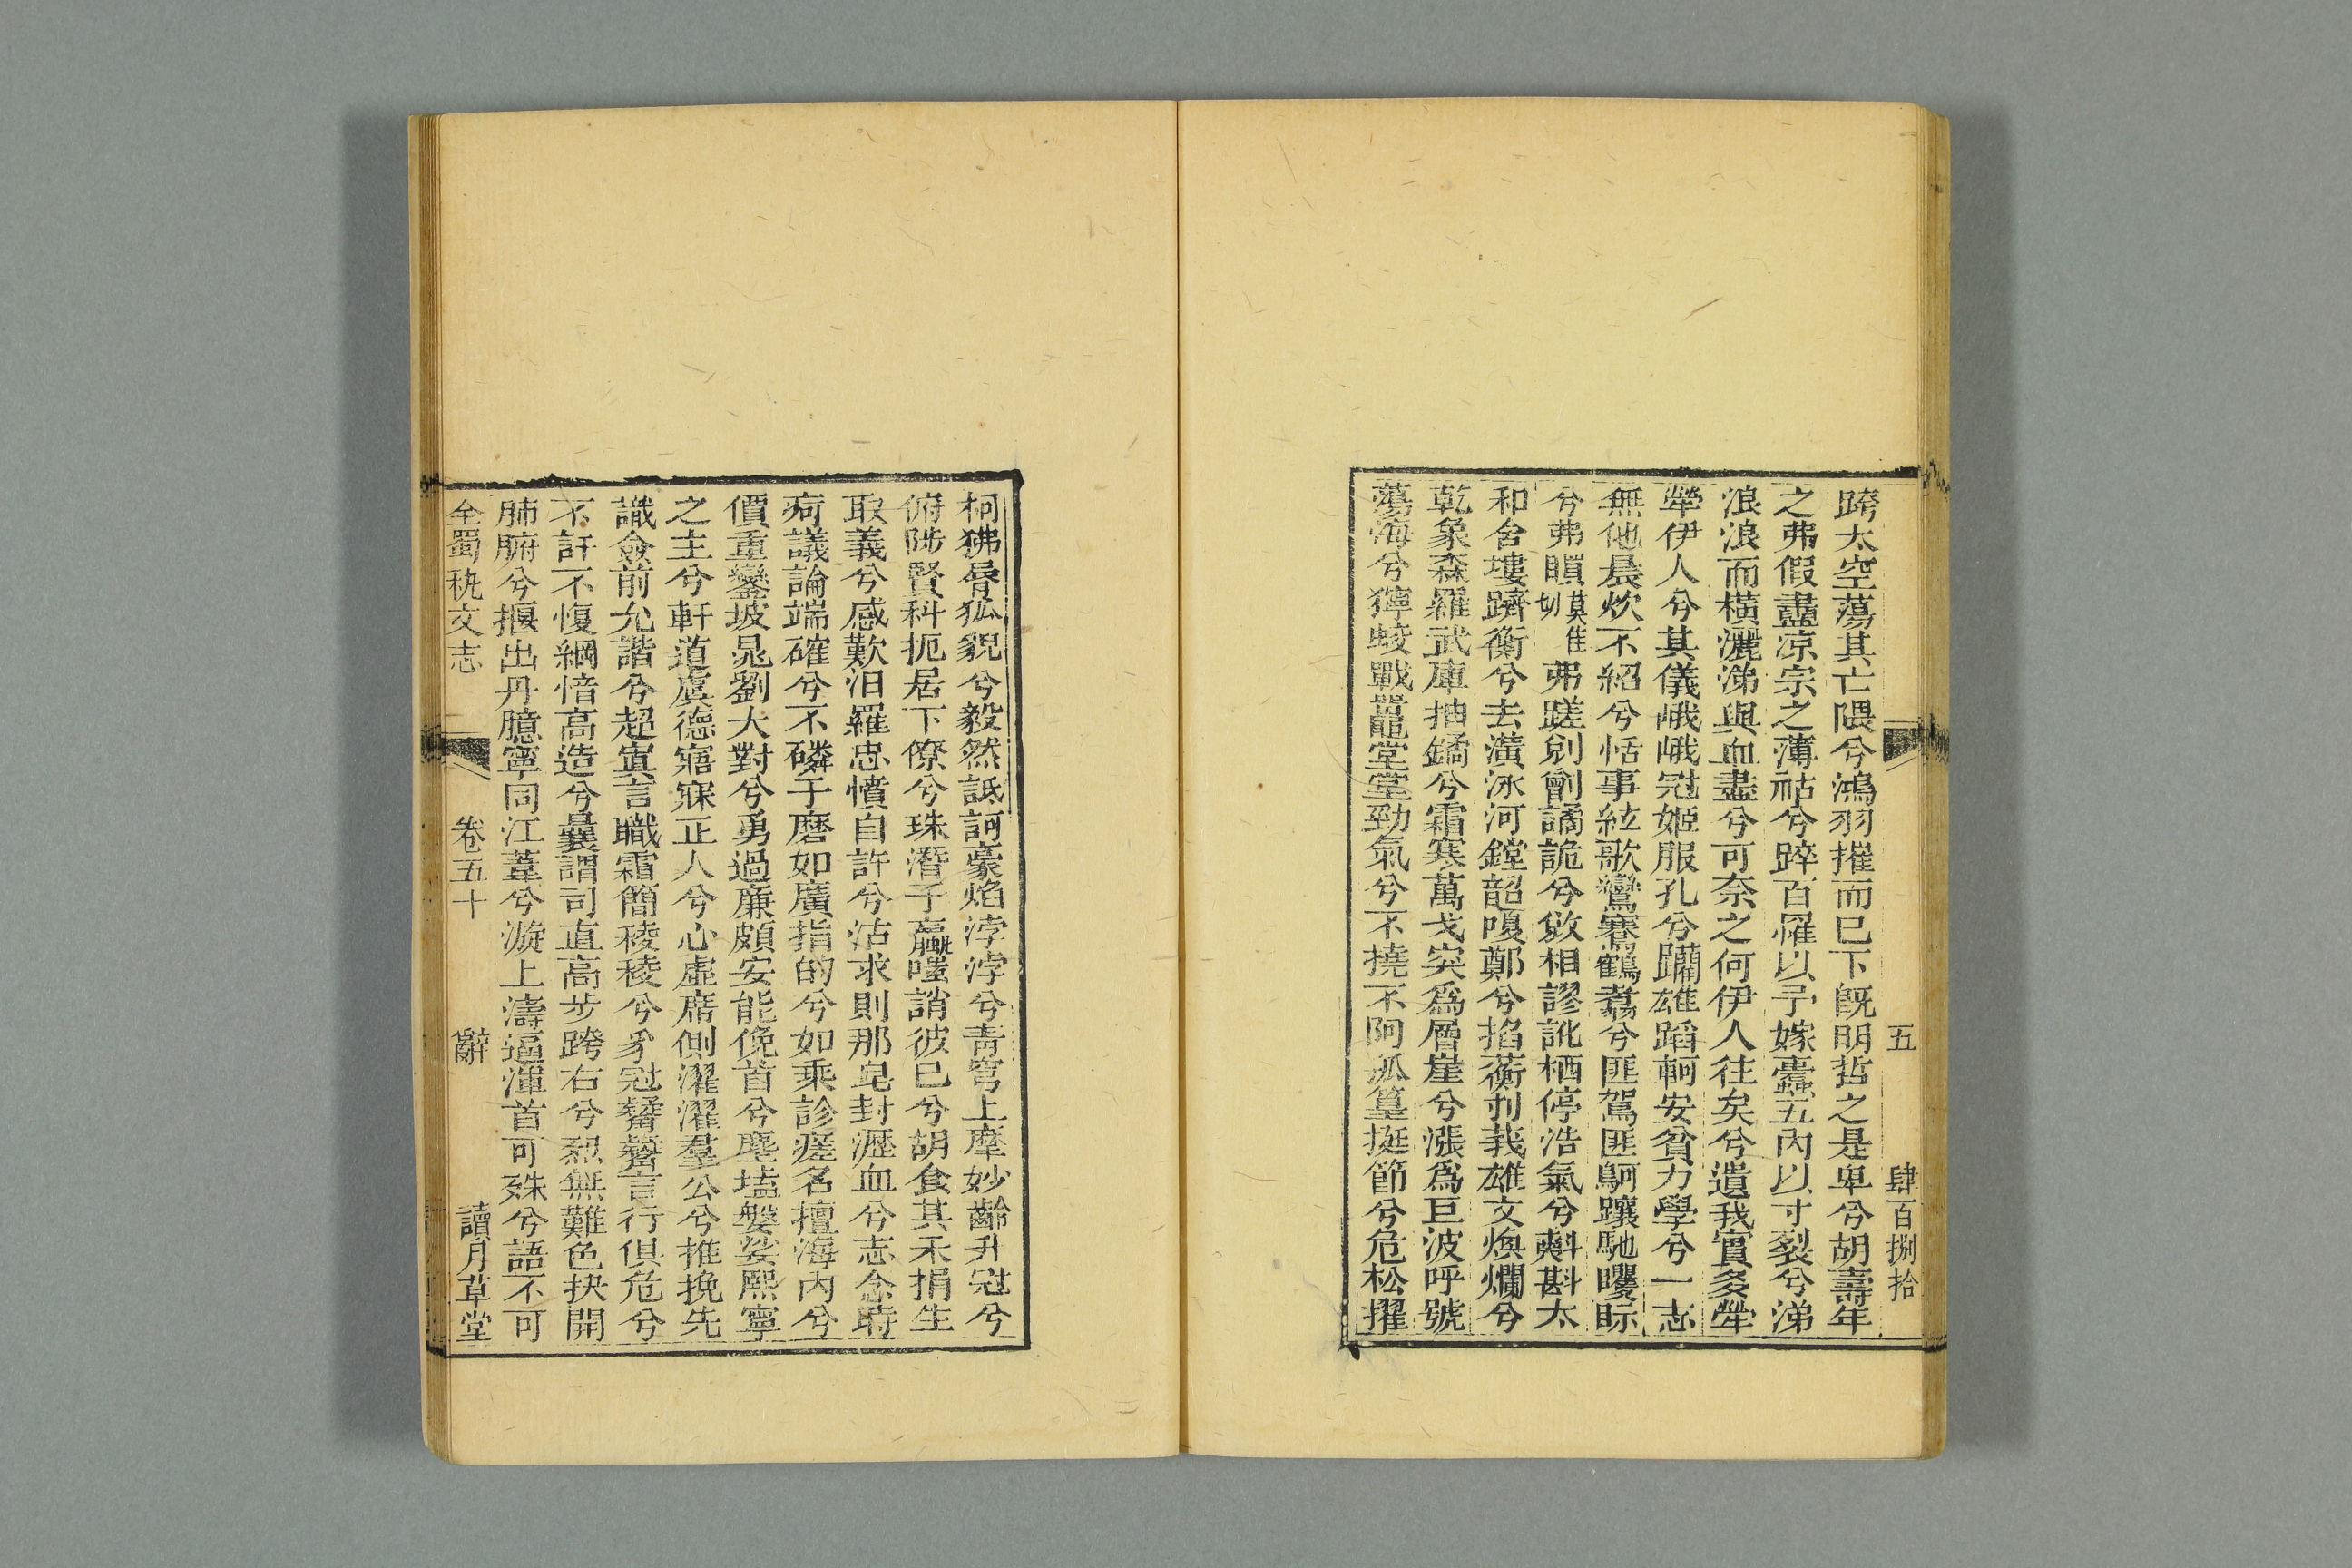 五　肆百捌拾
跨太空蕩其亡隈兮鴻羽摧而已下旣明哲之是卑兮胡壽年
之弗假盡凉宗之薄祜兮踤百罹以予嫁蠹五內以寸裂兮涕
浪浪而橫灑涕與血盡兮可奈之何伊人往矣兮遺我實多犖
犖伊人兮其儀峨峨冠姬服孔兮躪雄蹈軻安貧力學兮一志
無他晨炊不紹兮恬事絃歌鸞騫鶴翥兮匪駕匪駉躟馳矍眎
兮弗瞋莫隹切弗蹉剜劊譎詭兮斂相謬訛栖停浩氣兮斞斟太
和舍塿躋衡兮去潢泳河鏜韶嗄鄭兮掐蘅刋莪雄文煥爛兮
乾象森羅武庫抽鐍兮霜寒萬戈突爲層崖兮漲爲巨波呼號
蕩海兮獰蛟戰鼉堂堂勁氣兮不撓不阿孤篁挺節兮危松擢
柯狒脣狐貌兮毅然詆訶豪焰浡浡兮靑穹上摩妙齡升冠兮
俯陟賢科扼居下僚兮珠潛于蠃嗤誚彼已兮胡食其禾捐生
取義兮感歎汨羅忠憤自許兮沽求則那皂封瀝血兮志念時
疴議論端確兮不磷于磨如廣指的兮如乘診瘥名擅海內兮
價重鑾坡晁劉大對兮勇過廉頗安能俛首兮塵壒媻娑熙寧
之主兮軒道虞德寤寐正人兮心虛席側濯濯羣公兮推挽先
識僉前允諧兮超寘言職霜簡稜稜兮豸冠謷謷言行俱危兮
不訐不愎綱愔高造兮曩謂司直高步跨右兮烈無難色抉開
肺腑兮揠出丹臆寧同江葦兮漩上濤逼渾首可殊兮語不可
全蜀秇文志　卷五十　辭　讀月草堂